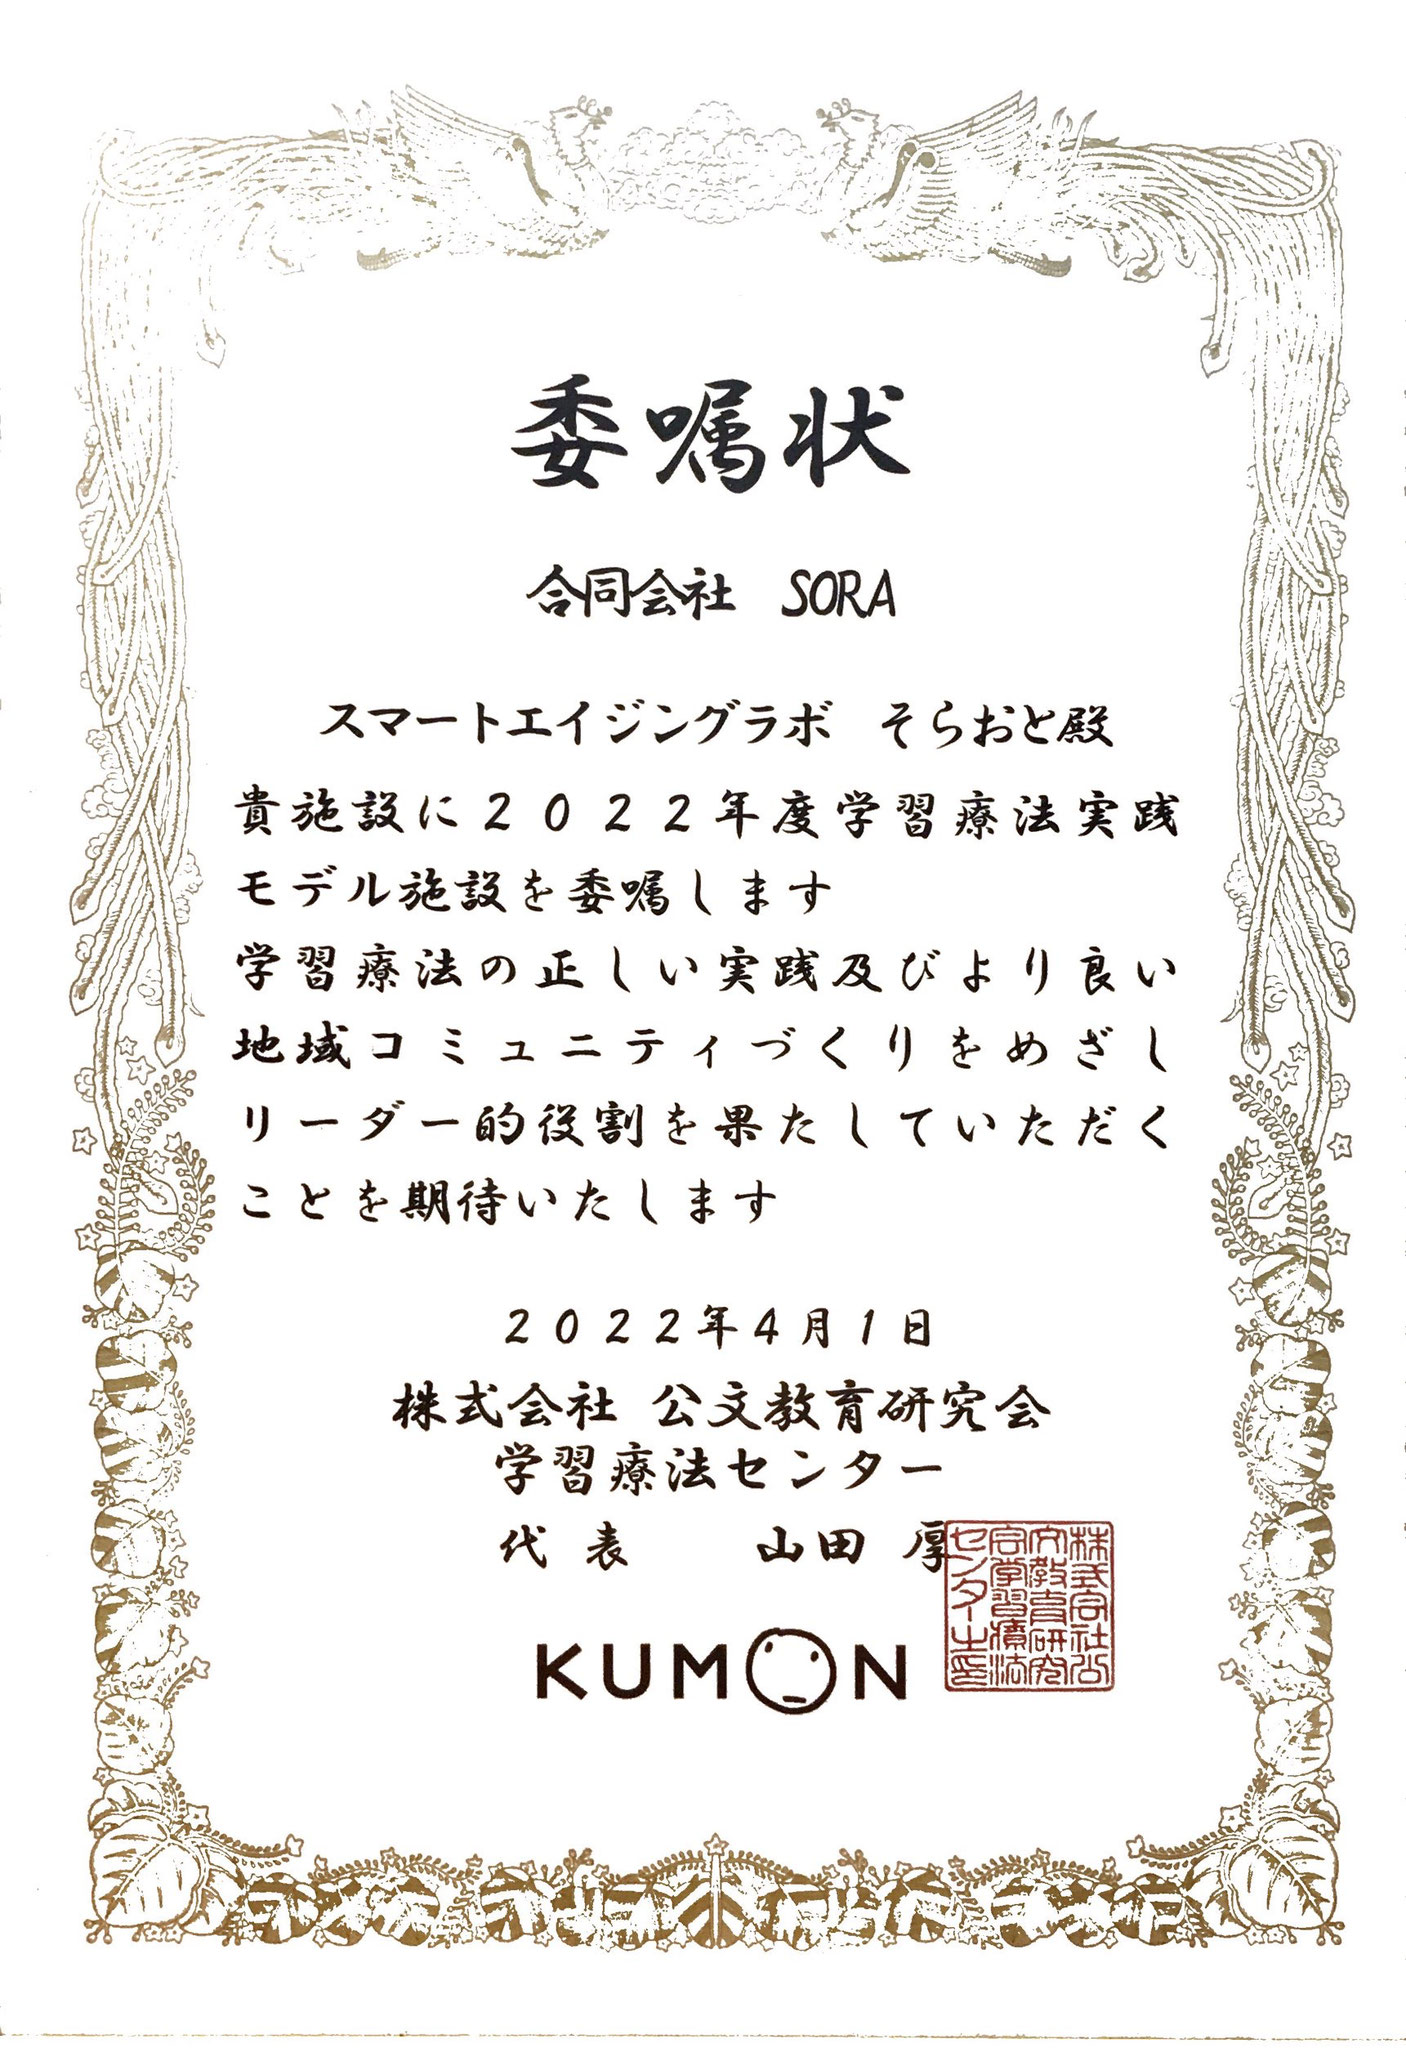 委嘱状
合同会社 SORA
スマートエイジングラボ そらおと殿
貴施設に2022年度学習療法実践
モデル施設を委嘱します
学習療法の正しい実践及びより良い
地域コミュニティづくりをめざし
リーダー的役割を果たしていただく
ことを期待いたします
2022年4月1日
株式会社 公文教育研究会
学習療法センター
代表 山田 厚
株式会社公
文教育研究
会学習療法
センター之印
KUMON